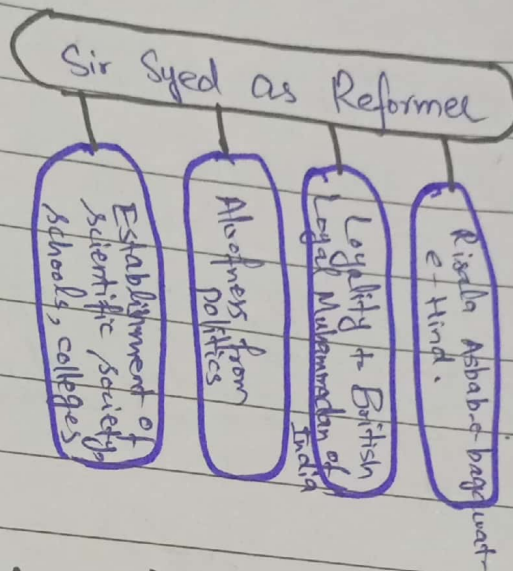 Sir Syed as Reformer
Establishment of
scientific society,
schools, colleges
Aloofness from
politics
Loyality to British
Loyal Muhammadan of
India
Risala Asbab-e-bagawat-
e-Hind.